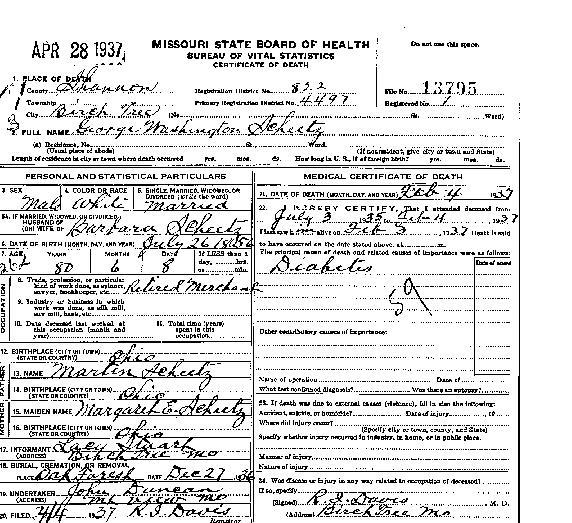 APR 28 1937
MISSOURI STATE BOARD OF HEALTH
BUREAU OF VITAL STATISTICS
CERTIFICATE OF DEATH
Do not use this space.
1. PLACE OF DEATH
County Shannon Registration District No. 822 File No. 13795
Township Primary Registration District No. 4497 Registered No. 1
City Birch Tree (No. St. Ward)
2. FULL NAME George Washington Scheetz
(a) Residence, No. St. Ward.
(Usual place of abode) (If nonresident, give city or town and State)
Length of residence in city or town where death occurred yrs. mos. ds. How long in U. S., if of foreign birth? yrs. mos. ds.
PERSONAL AND STATISTICAL PARTICULARS
3. SEX Male 4. COLOR OR RACE White 5. SINGLE, MARRIED, WIDOWED, OR DIVORCED (write the word) Married
5A. IF MARRIED, WIDOWED, OR DIVORCED
HUSBAND OF (OR) WIFE OF Barbara Scheetz
6. DATE OF BIRTH (MONTH, DAY, AND YEAR) July 26 1856
7. AGE YEARS 80 MONTHS 6 DAYS 8 If LESS than 1 day, hrs. or min.
OCCUPATION
8. Trade, profession, or particular kind of work done, as spinner, sawyer, bookkeeper, etc. Retired Merchant
9. Industry or business in which work was done, as silk mill, saw mill, bank, etc.
10. Date deceased last worked at this occupation (month and year) 11. Total time (years) spent in this occupation
12. BIRTHPLACE (CITY OR TOWN) (STATE OR COUNTRY) Ohio
FATHER
13. NAME Martin Scheetz
14. BIRTHPLACE (CITY OR TOWN) (STATE OR COUNTRY) Ohio
MOTHER
15. MAIDEN NAME Margaret E. Scheetz
16. BIRTHPLACE (CITY OR TOWN) (STATE OR COUNTRY) Ohio
17. INFORMANT Lacy
(ADDRESS) Birch Tree Mo
18. BURIAL, CREMATION, OR REMOVAL
PLACE Oak Forest DATE Dec 27 1936
19. UNDERTAKER John Duncan
(ADDRESS) Mt View Mo
20. FILED 1937 R. I. Davis
Registrar
MEDICAL CERTIFICATE OF DEATH
21. DATE OF DEATH (MONTH, DAY, AND YEAR) Feb 4 1937
22. I HEREBY CERTIFY, That I attended deceased from
July 3 1935 to Feb 4 1937
I last saw alive on Feb 3 1937 death is said
to have occurred on the date stated above, at m.
The principal cause of death and related causes of importance were as follows:
Date of onset
Diabetis
59
Other contributory causes of importance:
Name of operation Date of
What test confirmed diagnosis? Was there an autopsy?
23. If death was due to external causes (violence), fill in also the following:
Accident, suicide, or homicide? Date of injury 19
Where did injury occur?
(Specify city or town, county, and State)
Specify whether injury occurred in industry, in home, or in public place.
Manner of injury
Nature of injury
24. Was disease or injury in any way related to occupation of deceased?
If so, specify
(Signed) R. I. Davis M. D.
(Address) Birch Tree Mo